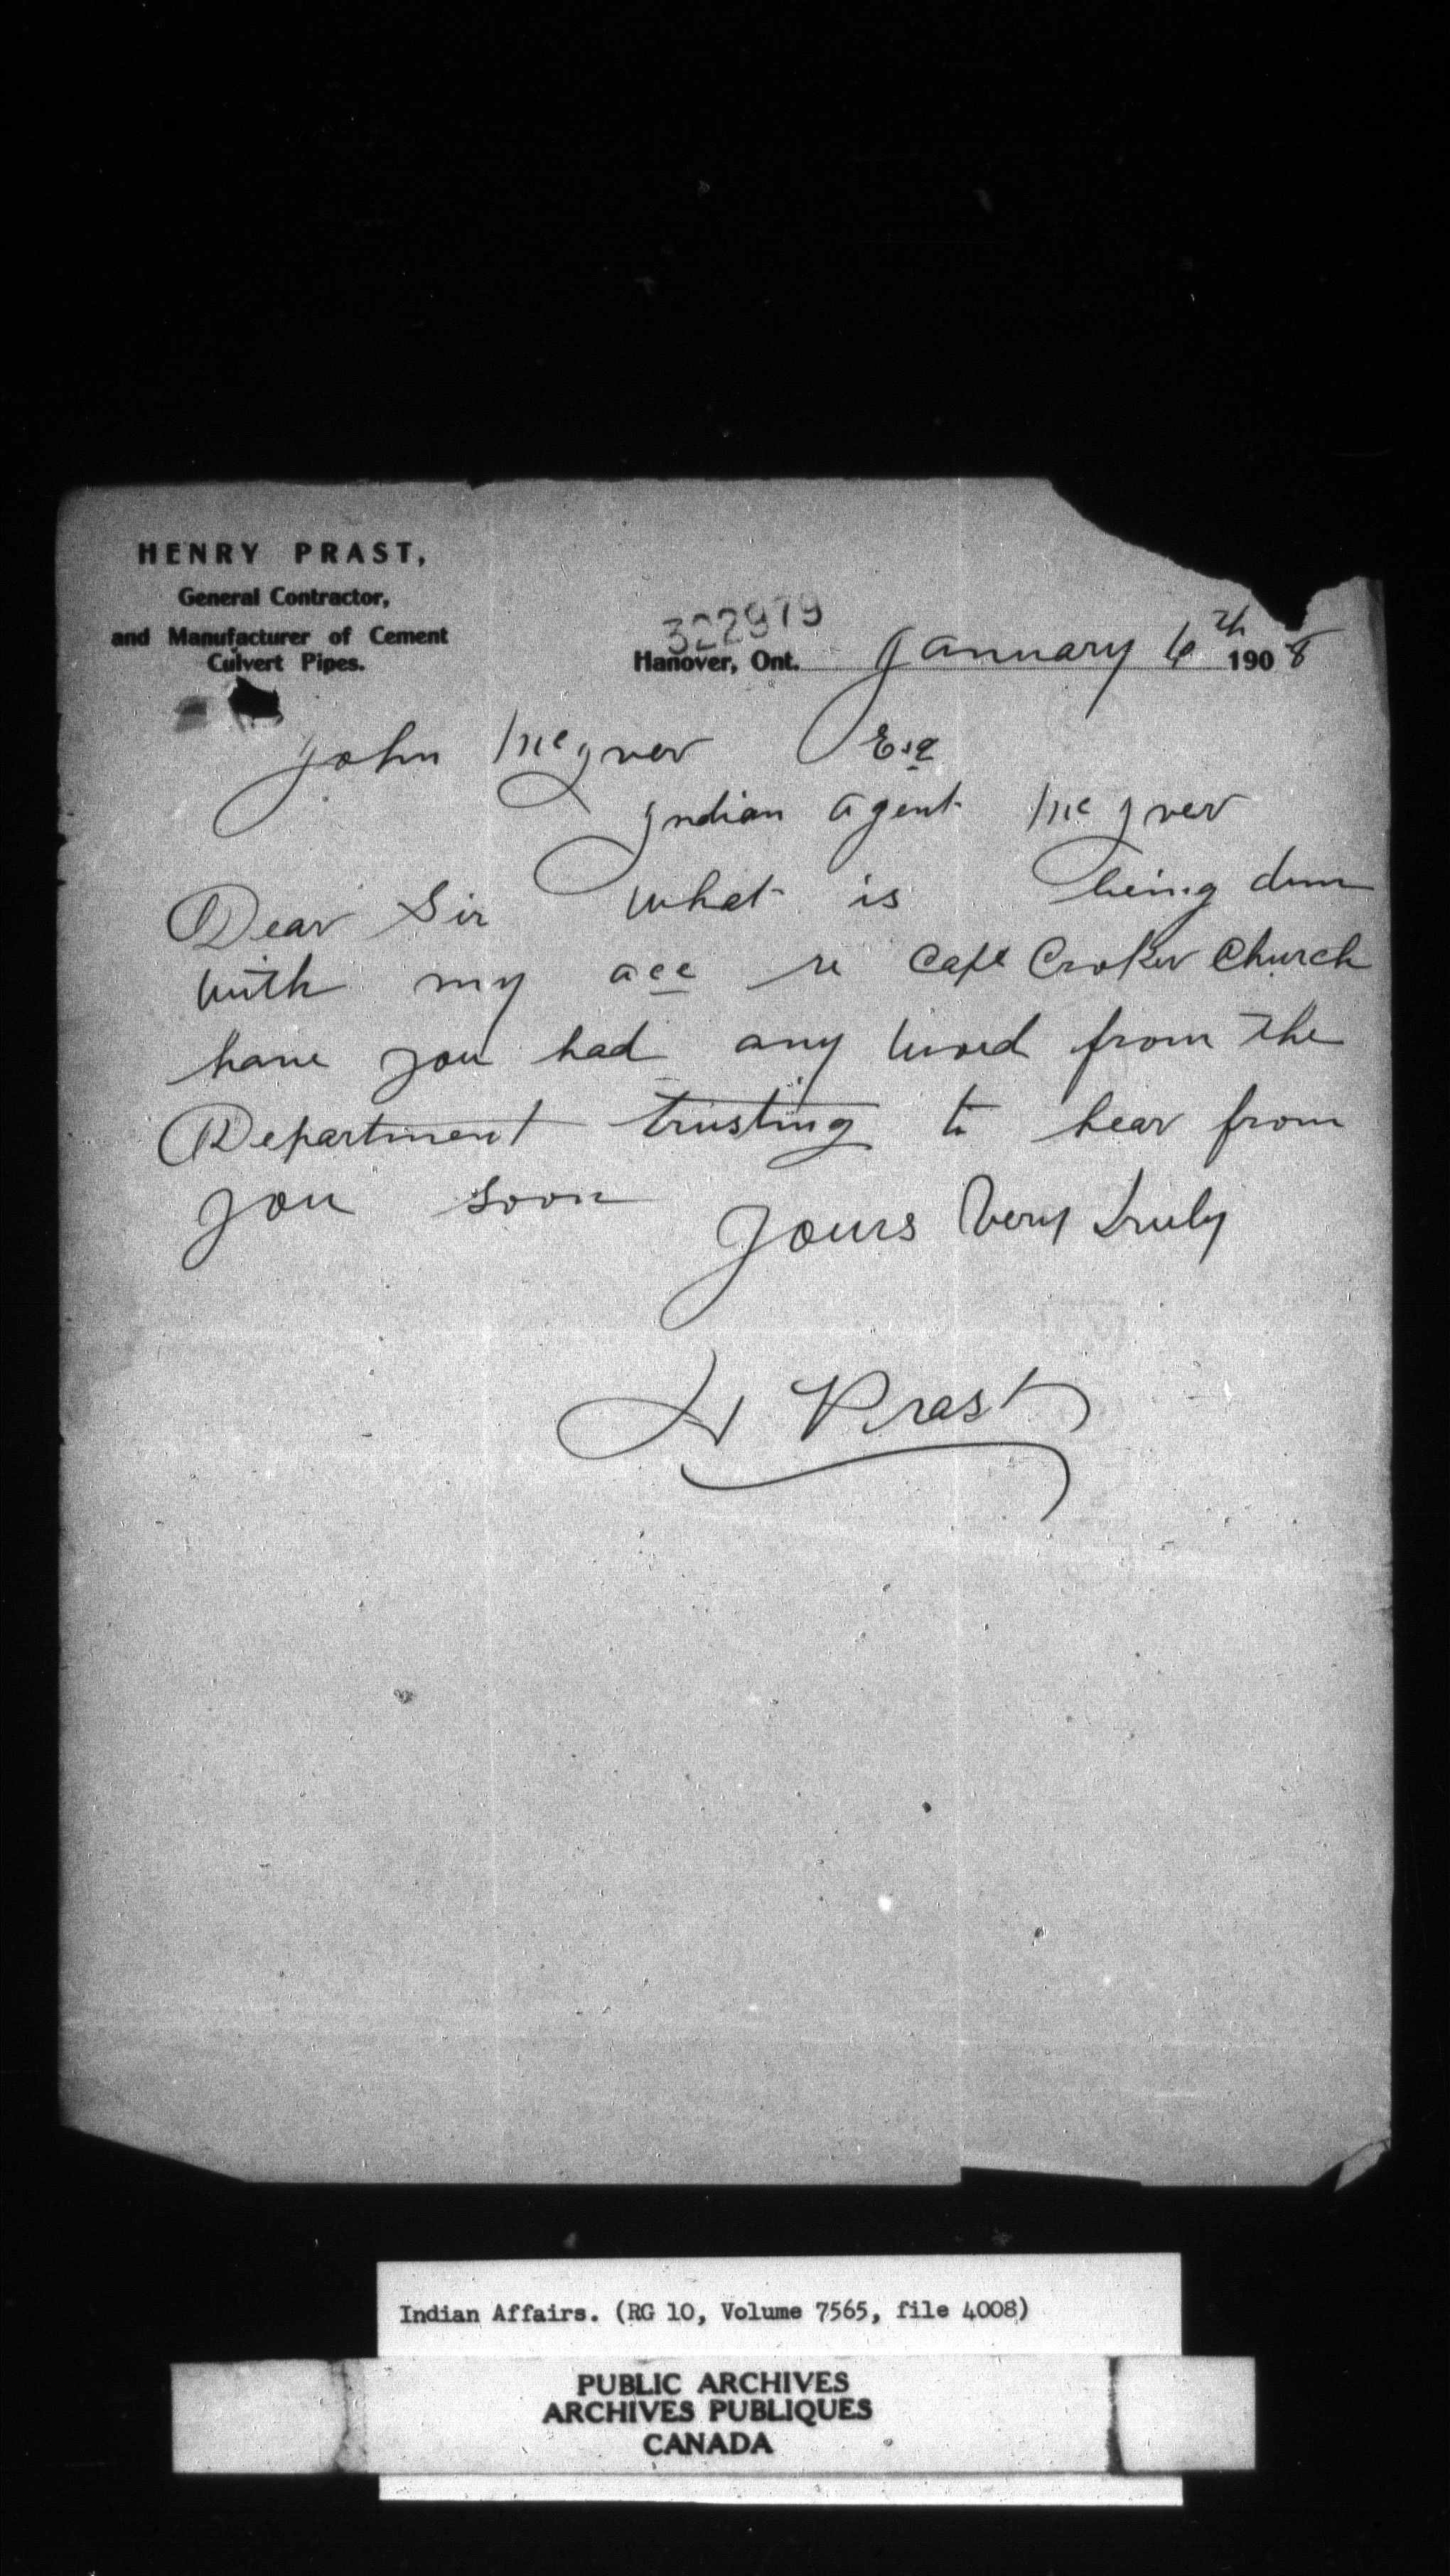 HENRY PRAST,
General Contractor,
and Manufacturer of Cement
Culvert Pipes.
322979
Hanover, Ont. January 6th 1908
John McIver Esq
Indian Agent McIver
Dear Sir What is being dun
with my acc re Cape Croker Church
have you had any word from the
Department trusting to hear from
you soon
Yours Very truly
H Prast
Indian Affairs. (RG 10, Volume 7565, file 4008)
PUBLIC ARCHIVES
ARCHIVES PUBLIQUES
CANADA